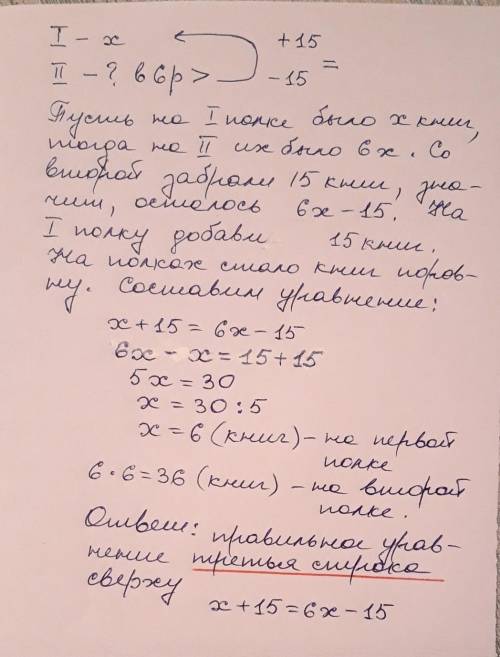 I – x +15
II – ? в 6р > –15 =
Пусть на I полке было x книг,
тогда на II их было 6x. Со
второй забрали 15 книг, зна-
чит, осталось 6x – 15. На
I полку добави 15 книг.
На полках стало книг поров-
ну. Составим уравнение:
x + 15 = 6x – 15
6x – x = 15 + 15
5x = 30
x = 30 : 5
x = 6 (книг) – на первой
полке
6 · 6 = 36 (книг) – на второй
полке.
Ответ: правильное урав-
нение третья строка
сверху
x + 15 = 6x – 15